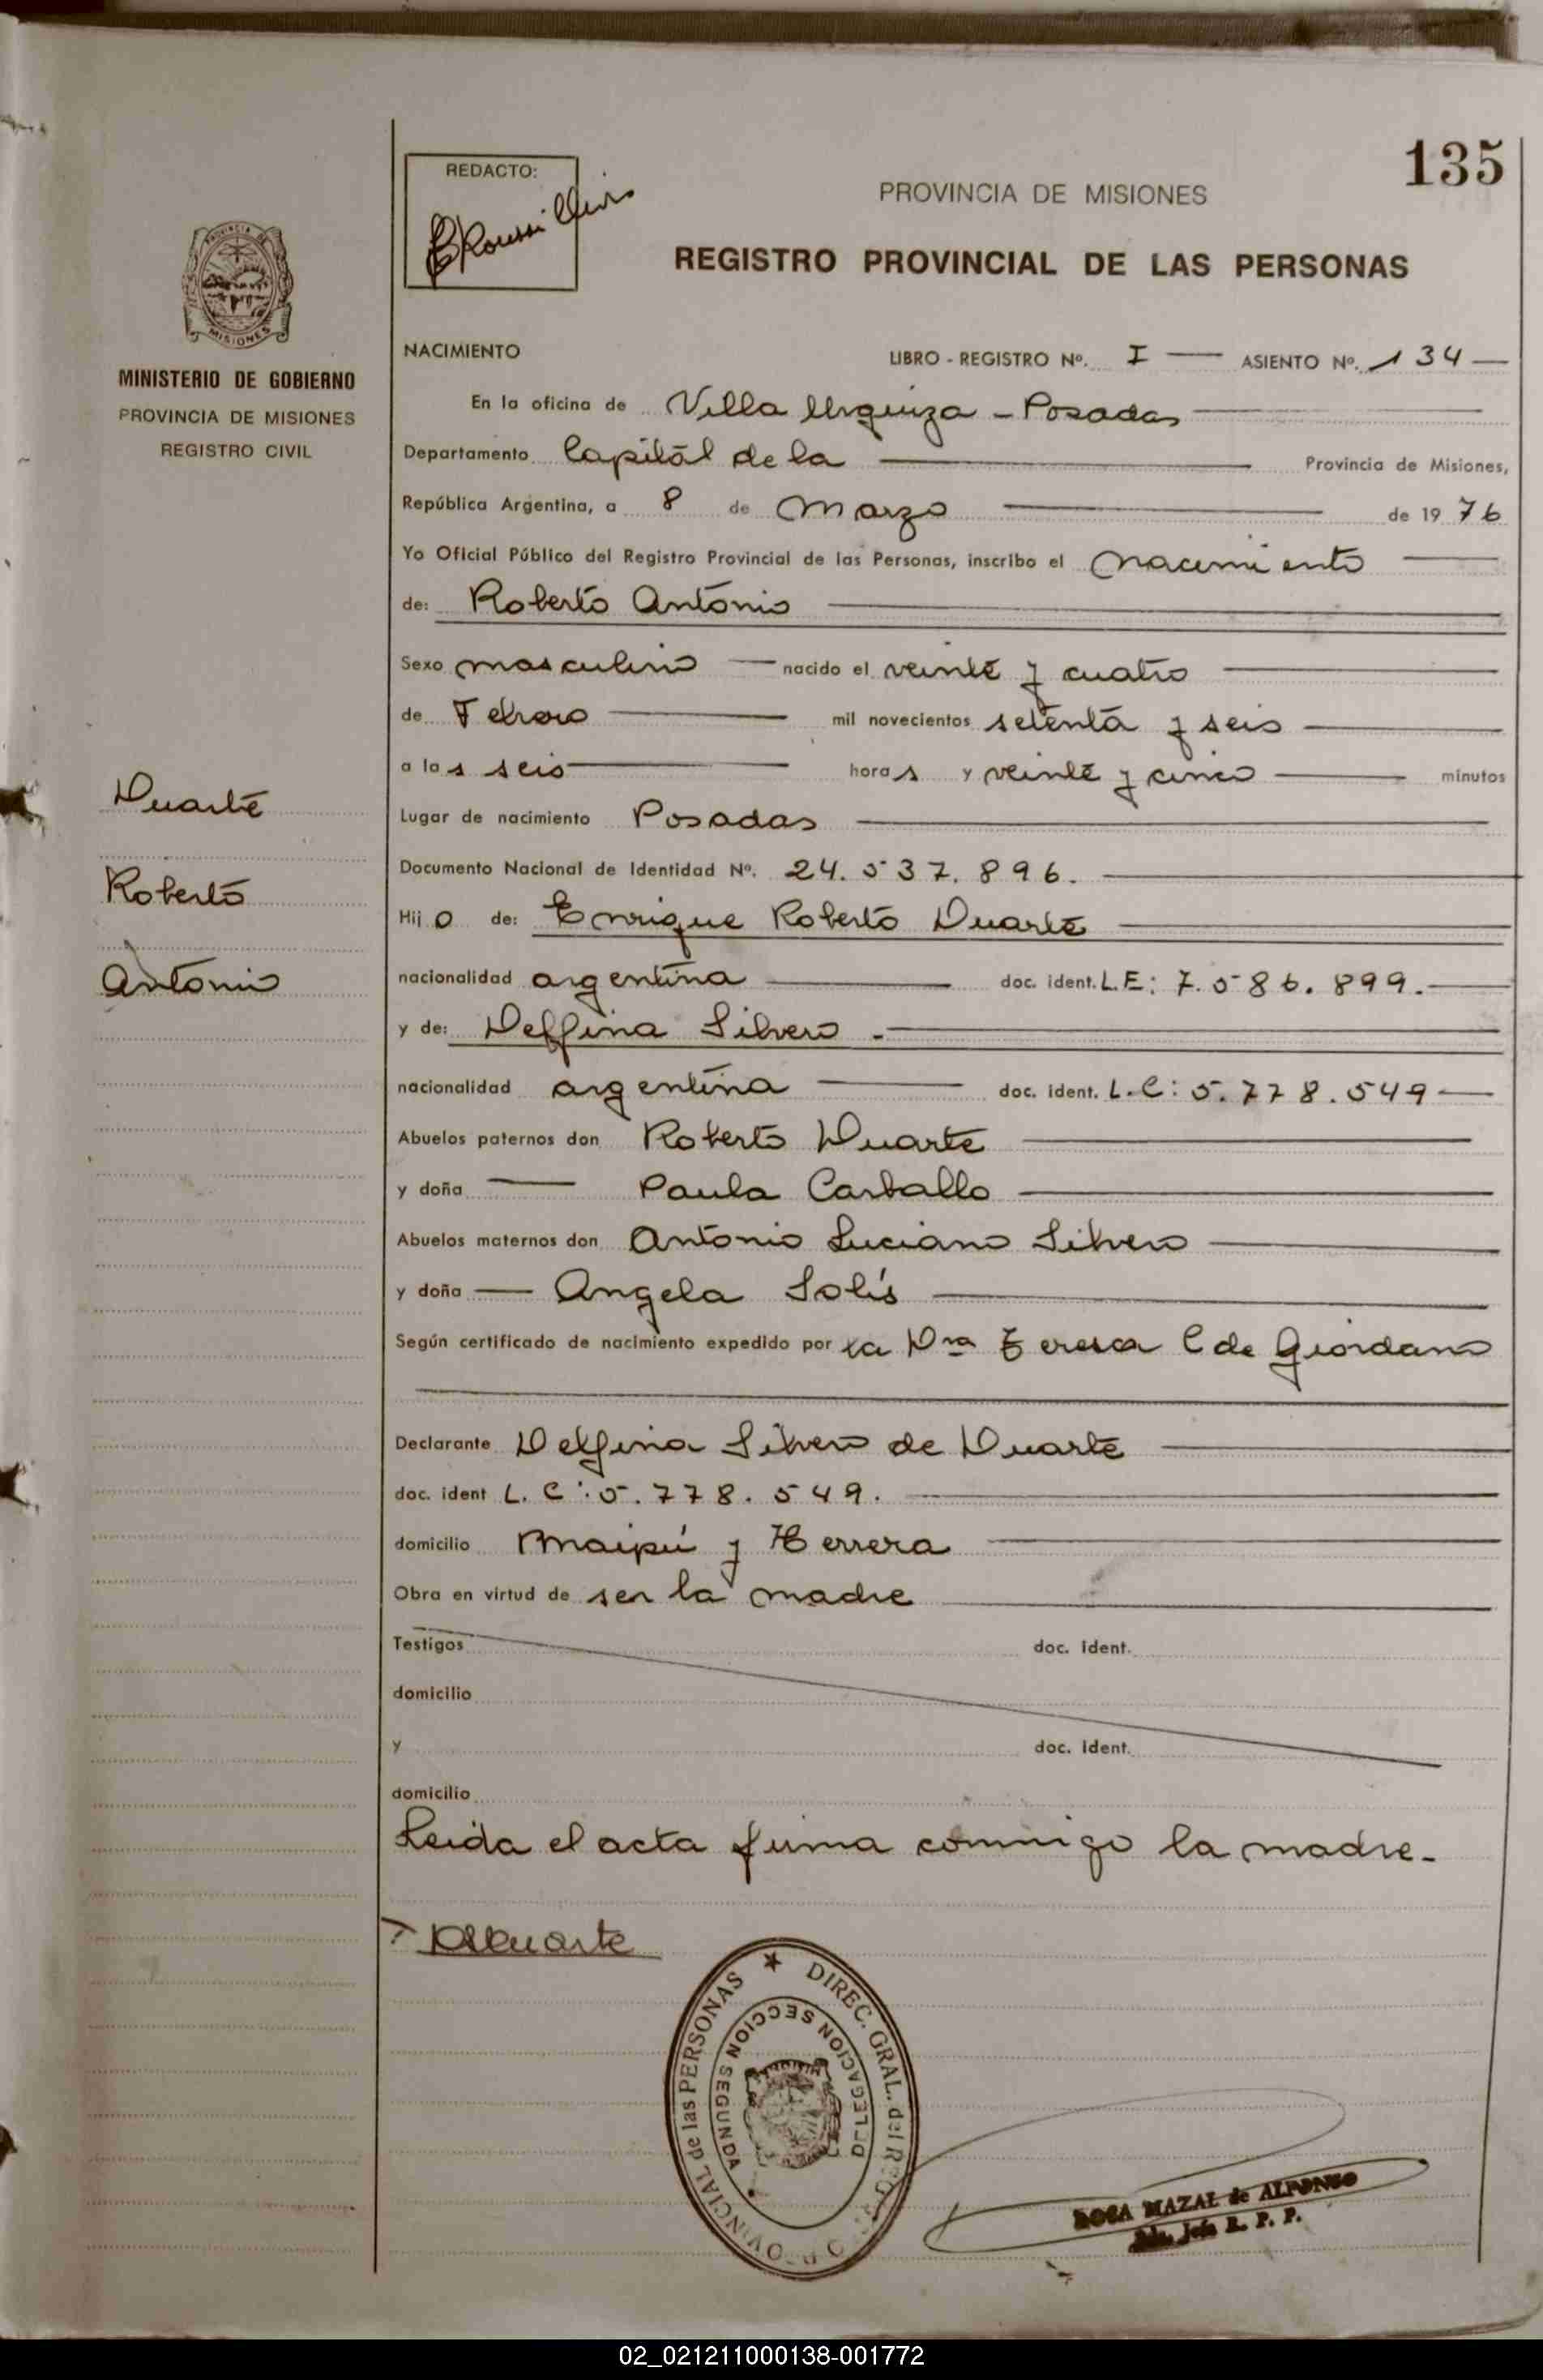 135
REDACTO:
PROVINCIA DE MISIONES
REGISTRO PROVINCIAL DE LAS PERSONAS
PROVINCIA DE
MISIONES
MINISTERIO DE GOBIERNO
PROVINCIA DE MISIONES
REGISTRO CIVIL
NACIMIENTO LIBRO - REGISTRO Nº. I — ASIENTO Nº. 134 —
En la oficina de Villa Urquiza - Posadas
Departamento Capital de la Provincia de Misiones,
República Argentina, a 8 de Marzo de 19 76
Yo Oficial Público del Registro Provincial de las Personas, inscribo el nacimiento
de: Roberto Antonio
Sexo masculino nacido el veinte y cuatro
de Febrero mil novecientos setenta y seis
a las seis horas y veinte y cinco minutos
Lugar de nacimiento Posadas
Documento Nacional de Identidad Nº. 24.537.896.
Hijo de: Enrique Roberto Duarte
nacionalidad argentina doc. ident. L.E: 7.586.899.
y de: Delfina Silvero.
nacionalidad argentina doc. ident. L.C: 5.778.549
Abuelos paternos don Roberto Duarte
y doña Paula Carballo
Abuelos maternos don Antonio Luciano Silvero
y doña Angela Solís
Según certificado de nacimiento expedido por la Dra Teresa C de Giordano
Declarante Delfina Silvero de Duarte
doc. ident L.C: 5.778.549.
domicilio Maipú y Herrera
Obra en virtud de ser la madre
Testigos doc. ident.
domicilio
y doc. ident.
domicilio
Leida el acta firma conmigo la madre.
Duarte
Roberto
Antonio
DIREC. GRAL. del REG PROVINCIAL de las PERSONAS
DELEGACION SECCION SEGUNDA
ROSA MAZAL de ALFONSO
Jefa R. P. P.
02_021211000138-001772